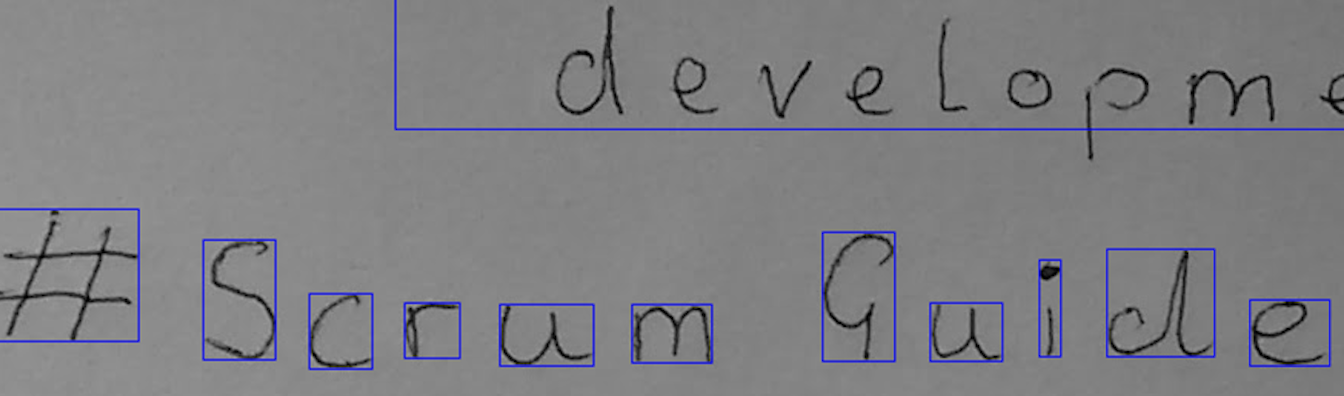 developme
# Scrum Guide